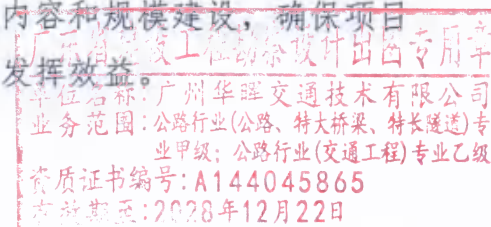 内容和规模建设，确保项目
广东省建设工程勘察设计出图专用章
发挥效益。
单位名称:广州华旺交通技术有限公司
业务范围:公路行业(公路、特大桥梁、特长隧道)专
业甲级；公路行业(交通工程)专业乙级
资质证书编号:A144045865
有效期至:2028年12月22日